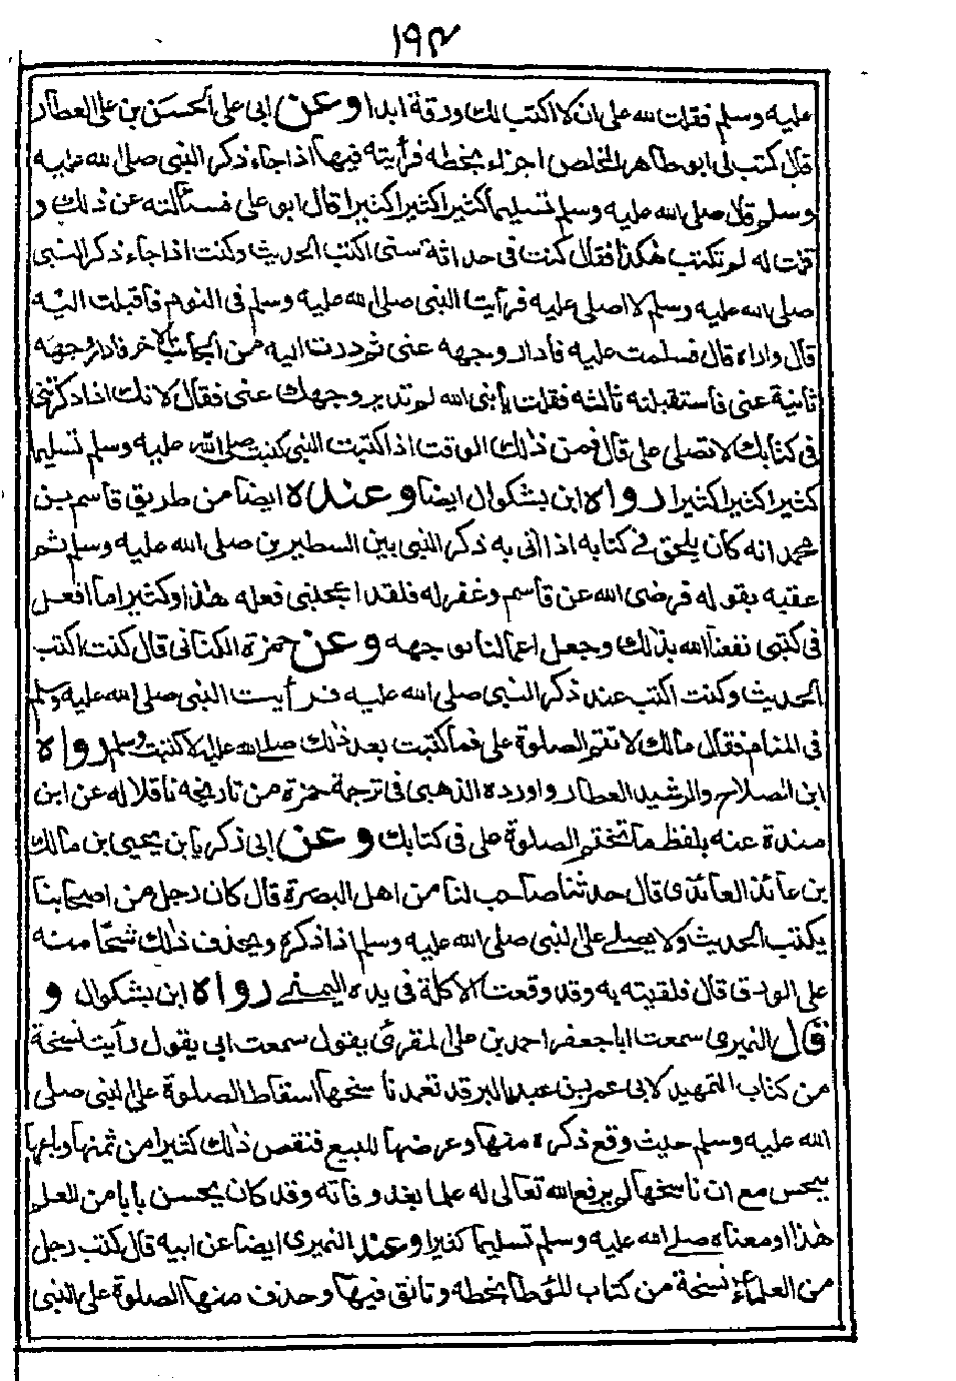 ١٩٣
عليه وسلم فقلت لله على ان لا اكتب لك ورقة ابدا وعن ابى على الحسن بن على العطار
قال كتب لى ابو طاهر المخلص اجزاء بخطه فرأيته فيها اذا جاء ذكر النبى صلى الله عليه
وسلم قال صلى الله عليه وسلم تسليما كثيرا كثيرا كثيرا قال ابو على فسألته عن ذلك و
قلت له لم تكتب هكذا فقال كنت فى حداثة سنى اكتب الحديث وكنت اذا جاء ذكر النبى
صلى الله عليه وسلم لا اصلى عليه فرأيت النبى صلى الله عليه وسلم فى النوم فاقبلت اليه
قال واراه قال فسلمت عليه فادار وجهه عنى ثم درت اليه من الجانب الاخر فادار وجهه
ثانية عنى فاستقبلته ثالثه فقلت يا نبى الله لم تدير وجهك عنى فقال لانك اذا ذكرتنى
فى كتابك لا تصلى على قال فمن ذلك الوقت اذا كتبت النبى كتبت صلى الله عليه وسلم تسليما
كثيرا كثيرا كثيرا رواه ابن بشكوال ايضا وعنده ايضا من طريق قاسم بن
محمد انه كان يلحق فى كتابه اذا اتى به ذكر النبى بين السطيرين صلى الله عليه وسلم ثم
عقبه بقوله فرضى الله عن قاسم وغفر له فلقد اعجبنى فعله هذا وكثيرا ما افعل
فى كتبى نفعنا الله بذلك وجعل اعمالنا لوجهه وعن حمزة الكنانى قال كنت اكتب
الحديث وكنت اكتب عند ذكر النبى صلى الله عليه فرأيت النبى صلى الله عليه وسلم
فى المنام فقال مالك لا تتم الصلوة على فما كتبت بعد ذلك صلے الله عليه الا كتبت وسلم رواه
ابن الصلاح والرشيد العطار واورده الذهبى فى ترجمة حمزة من تاريخه ناقلا له عن ابن
مندة عنه بلفظ ما تختم الصلوة على فى كتابك وعن ابى زكريا بن يحيى بن مالك
بن عائذ العائذى قال حدثنا صاحب لنا من اهل البصرة قال كان رجل من اصحابنا
يكتب الحديث ولا يصلے على النبى صلى الله عليه وسلم اذا ذكره ويحذف ذلك شحّا منه
على الورق قال فلقيته به وقد وقعت الاكلة فى يده اليمنے رواه ابن بشكوال و
قال النميرى سمعت ابا جعفر احمد بن على المقرئ يقول سمعت ابى يقول رأيت نسخة
من كتاب التمهيد لابى عمر بن عبد البر قد تعمد ناسخها اسقاط الصلوة على النبى صلى
الله عليه وسلم حيث وقع ذكره منها وعرضها للبيع فنقص ذلك كثيرا من ثمنها وباعها
ببخس مع ان ناسخها لم يرفع الله تعالى له علما بعد وفاته وقد كان يحسن بابا من العلم
هذا او معناه صلے الله عليه وسلم تسليما كثيرا وعند النميرى ايضا عن ابيه قال كتب رجل
من العلماء نسخة من كتاب الموطا بخطه وتانق فيها وحذف منها الصلوة على النبى